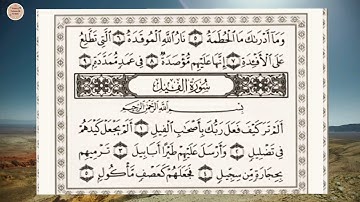 وَمَآ أَدْرَىٰكَ مَا ٱلْحُطَمَةُ ٥ نَارُ ٱللَّهِ ٱلْمُوقَدَةُ ٦ ٱلَّتِى تَطَّلِعُ
عَلَى ٱلْأَفْـِٔدَةِ ٧ إِنَّهَا عَلَيْهِم مُّؤْصَدَةٌ ٨ فِى عَمَدٍ مُّمَدَّدَةٍۭ ٩
سُورَةُ الْفِيلِ
بِسْمِ ٱللَّهِ ٱلرَّحْمَٰنِ ٱلرَّحِيمِ
أَلَمْ تَرَ كَيْفَ فَعَلَ رَبُّكَ بِأَصْحَٰبِ ٱلْفِيلِ ١ أَلَمْ يَجْعَلْ كَيْدَهُمْ
فِى تَضْلِيلٍ ٢ وَأَرْسَلَ عَلَيْهِمْ طَيْرًا أَبَابِيلَ ٣ تَرْمِيهِم
بِحِجَارَةٍ مِّن سِجِّيلٍ ٤ فَجَعَلَهُمْ كَعَصْفٍ مَّأْكُولٍۭ ٥